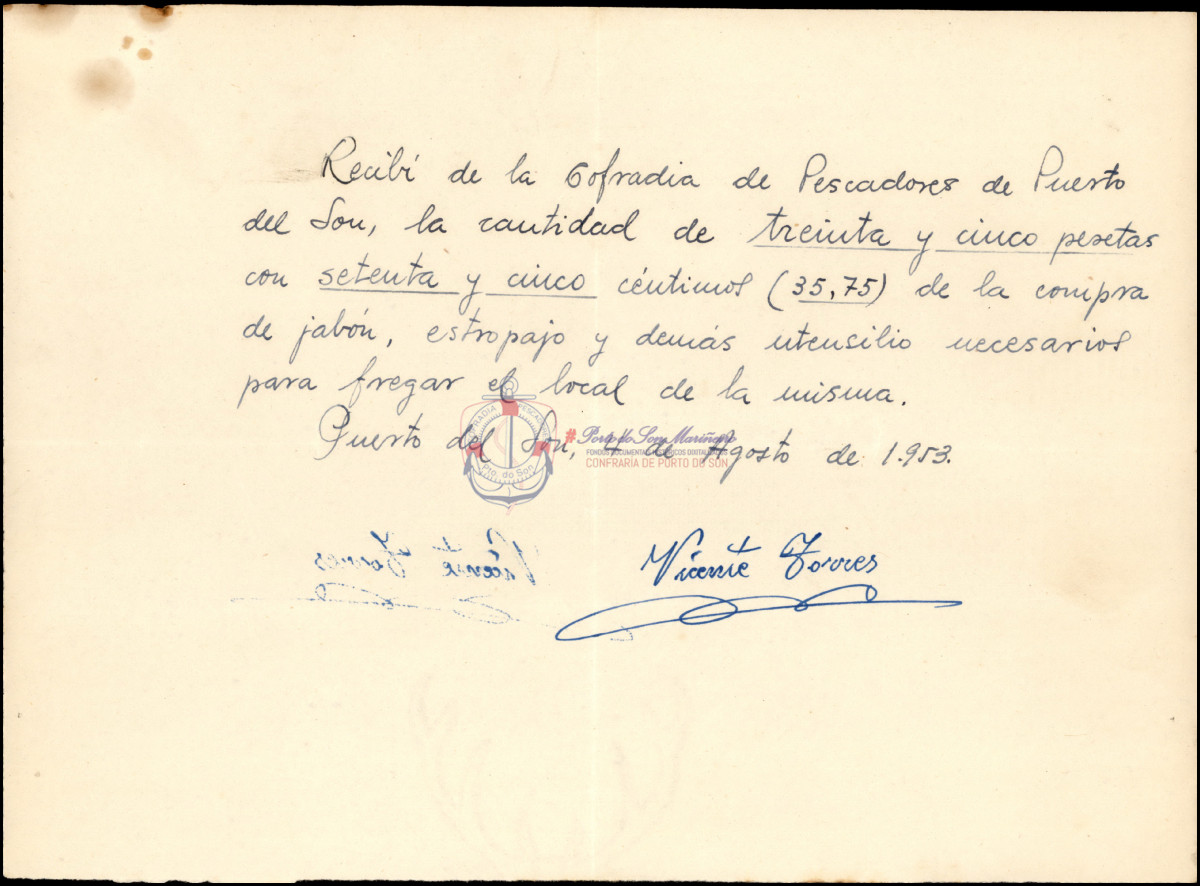 Recibí de la Cofradia de Pescadores de Puerto
del Son, la cantidad de treinta y cinco pesetas
con setenta y cinco céntimos (35,75) de la compra
de jabón, estropajo y demás utensilio necesarios
para fregar el local de la misma.
Puerto del Son, 4 de Agosto de 1.953.
COFRADIA PESCADORES
Pto. do Son
#Porto do Son Mariñeiro
FONDOS DOCUMENTAIS HISTÓRICOS DIXITALIZADOS
CONFRARÍA DE PORTO DO SON
Vicente Torres